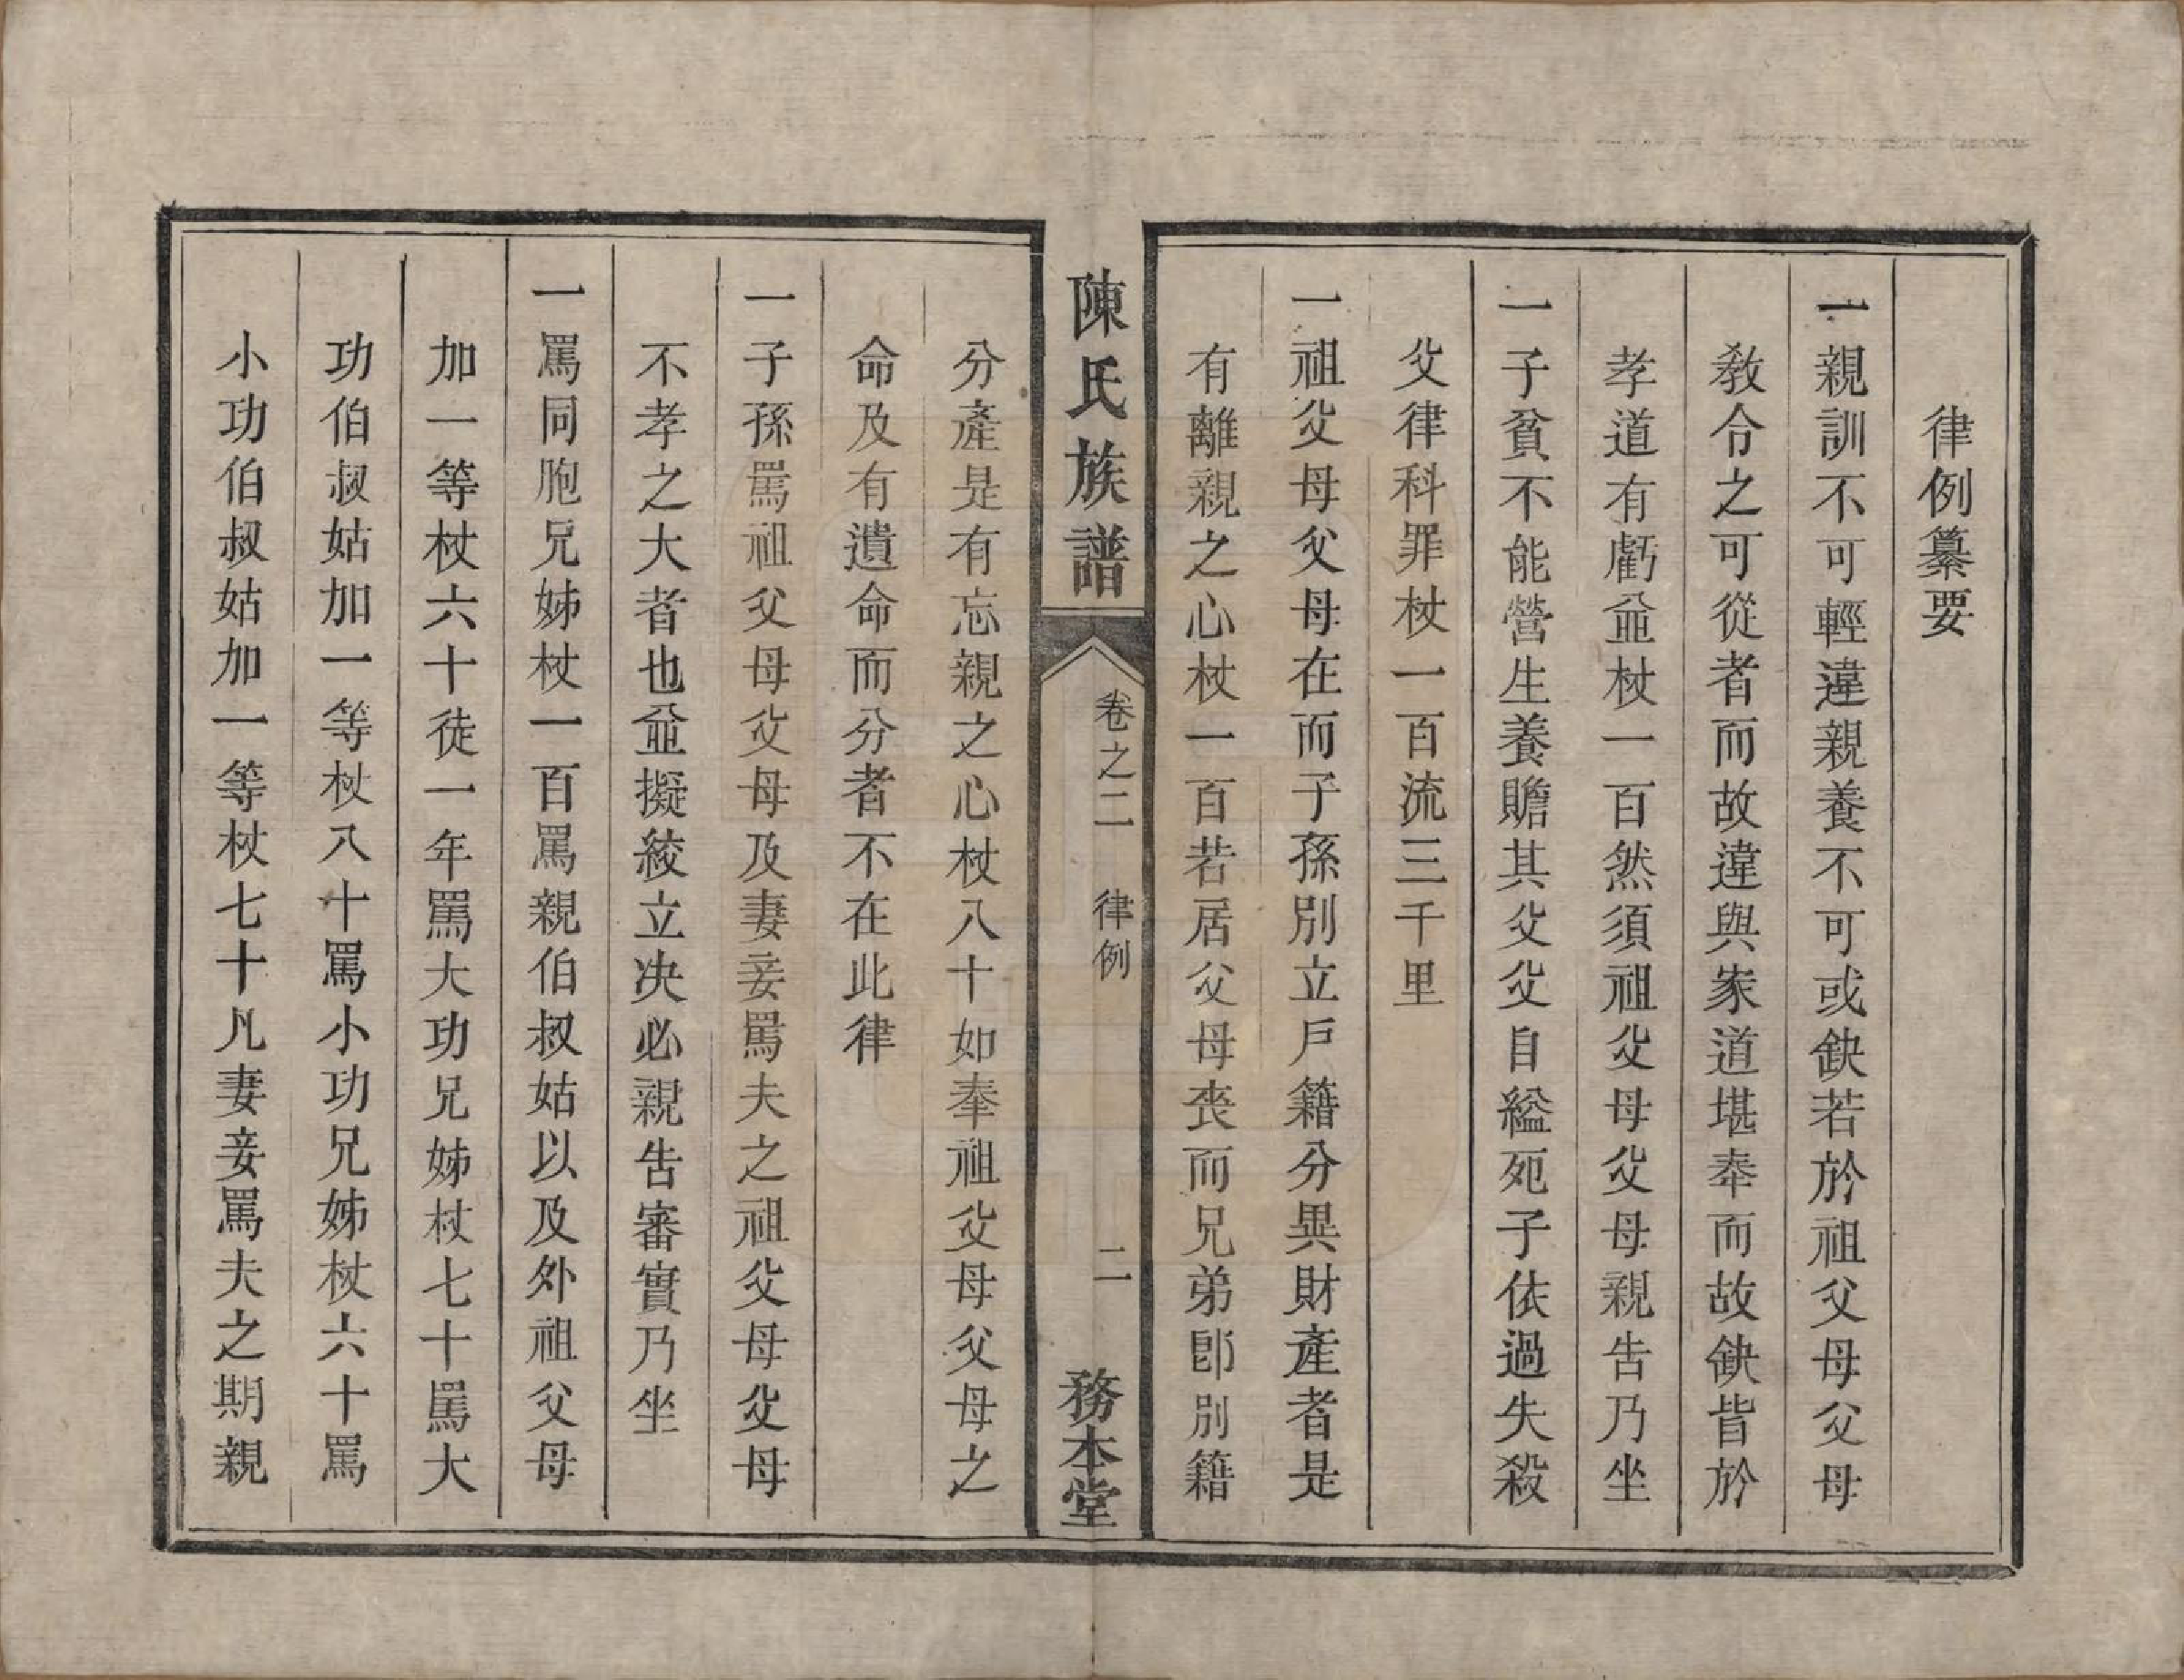 律例纂要
一親訓不可輕違親養不可或缺若於祖父母父母
教令之可從者而故違與家道堪奉而故缺皆於
孝道有虧並杖一百然須祖父母父母親告乃坐
一子貧不能營生養贍其父父自縊死子依過失殺
父律科罪杖一百流三千里
一祖父母父母在而子孫別立戶籍分異財產者是
有離親之心杖一百若居父母喪而兄弟卽別籍
陳氏族譜
卷之二 律例
二
務本堂
分產是有忘親之心杖八十如奉祖父母父母之
命及有遺命而分者不在此律
一子孫罵祖父母父母及妻妾罵夫之祖父母父母
不孝之大者也並擬絞立決必親告審實乃坐
一罵同胞兄姊杖一百罵親伯叔姑以及外祖父母
加一等杖六十徒一年罵大功兄姊杖七十罵大
功伯叔姑加一等杖八十罵小功兄姊杖六十罵
小功伯叔姑加一等杖七十凡妻妾罵夫之期親